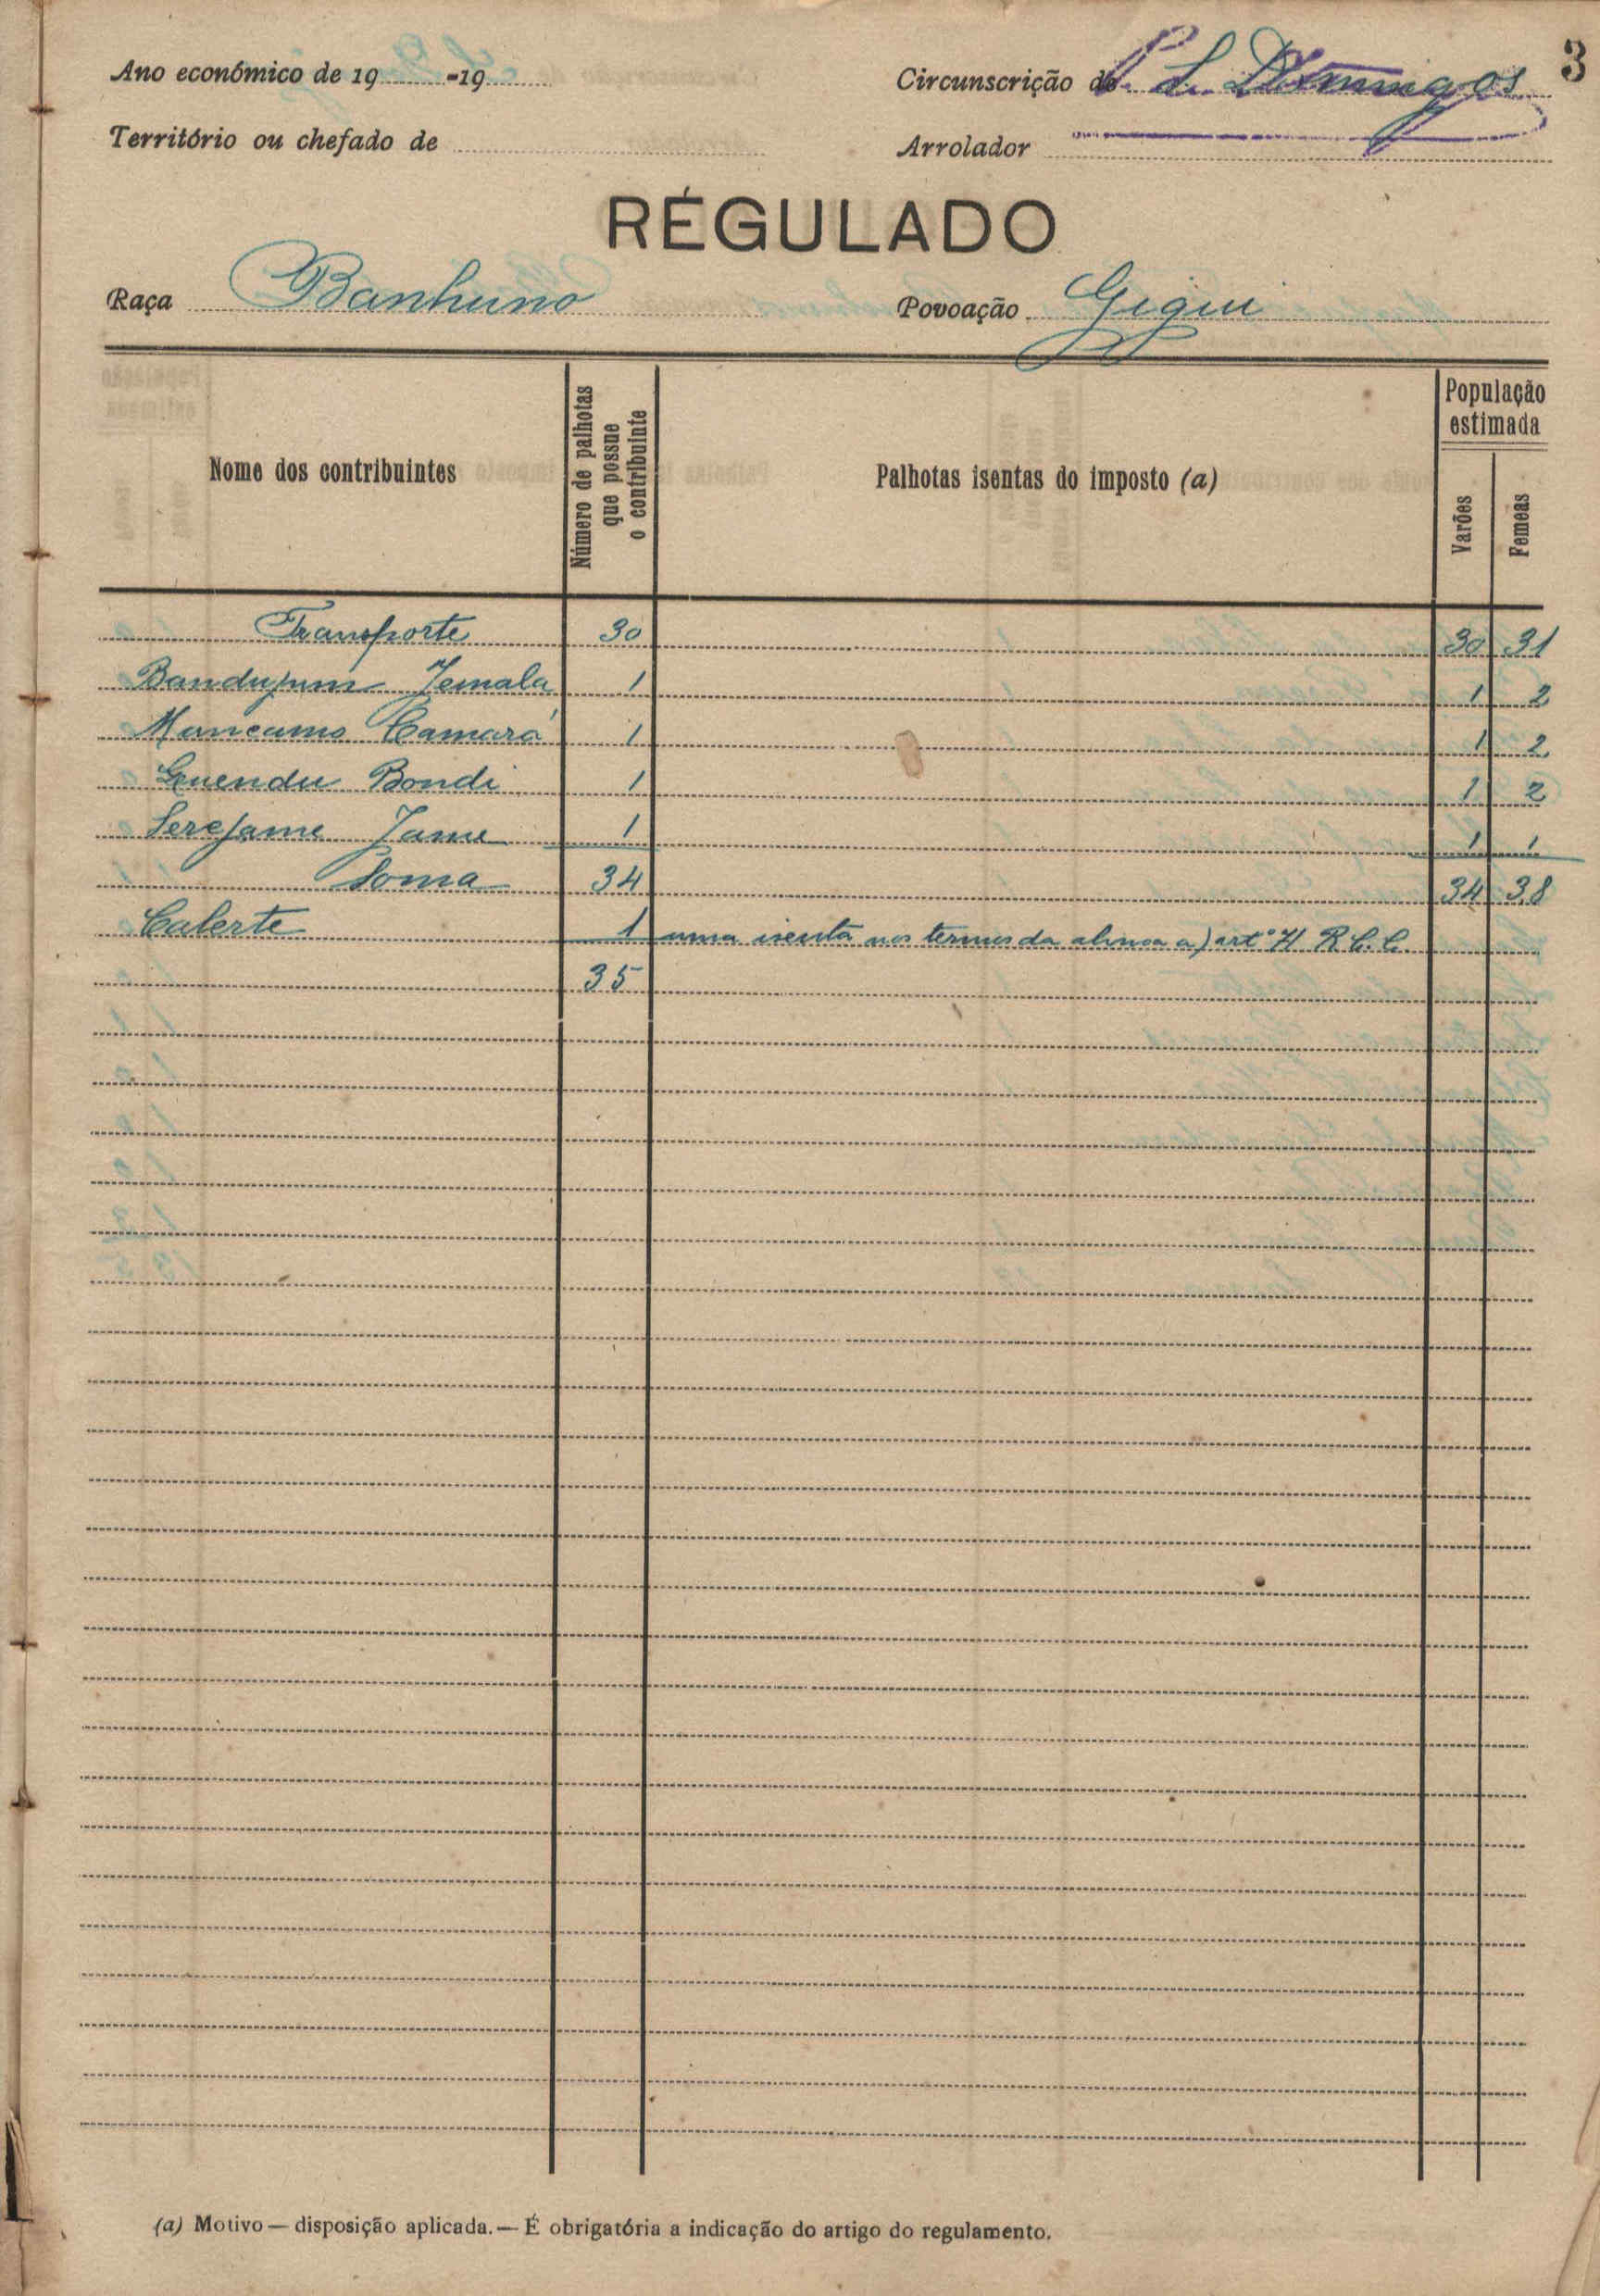 3
Ano económico de 19 -19
Circunscrição de S. Domingos
Território ou chefado de
Arrolador
RÉGULADO
Raça Banhuno
Povoação Gigui
Nome dos contribuintes
Número de palhotas que possue o contribuinte
Palhotas isentas do imposto (a)
População estimada
Varões
Femeas
Transporte 30 30 31
Bandujum Jemala 1 1 2
Mancamo Camará 1 1 2
Quendu Bondi 1 1 2
Serejame Jame 1 1 1
Soma 34 34 38
Calerte 1 uma isenta nos termos da alinea a) artº H R. C. C.
35
(a) Motivo — disposição aplicada. — É obrigatória a indicação do artigo do regulamento.